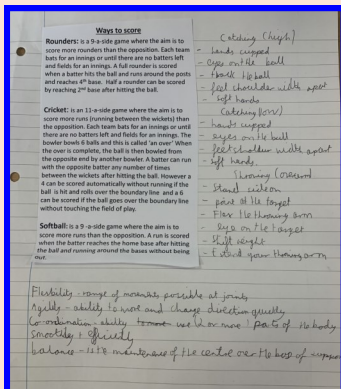 Ways to score
Rounders: is a 9-a-side game where the aim is to
score more rounders than the opposition. Each team
bats for an innings or until there are no batters left
and fields for an innings. A full rounder is scored
when a batter hits the ball and runs around the posts
and reaches 4th base. Half a rounder can be scored
by reaching 2nd base after hitting the ball.
Cricket: is an 11-a-side game where the aim is to
score more runs (running between the wickets) than
the opposition. Each team bats for an innings or until
there are no batters left and fields for an innings. The
bowler bowls 6 balls and this is called 'an over' When
the over is complete, the ball is then bowled from
the opposite end by another bowler. A batter can run
with the opposite batter any number of times
between the wickets after hitting the ball. However a
4 can be scored automatically without running if the
ball is hit and rolls over the boundary line and a 6
can be scored if the ball goes over the boundary line
without touching the field of play.
Softball: is a 9 -a-side game where the aim is to
score more runs than the opposition. A run is scored
when the batter reaches the home base after hitting
the ball and running around the bases without being
out.
Catching (high)
- hands cupped
- eyes on the ball
- track the ball
- feet shoulder width apart
- soft hands
Catching (low)
- hands cupped
- eyes on the ball
- feet sholder width apart
- soft hands.
Throwing (overarm)
- Stand side on
- point at the target
- Flex the throwing arm
- eye on the target
- shift weight
- Extend your throwing arm
Flexibility - range of movements possible at joints
Agility - ability to move and change direction quickly
Co-ordination - ability to use 2 or more parts of the body
smoothly + efficiently
balance - is the maintenence of the centre over the base of support